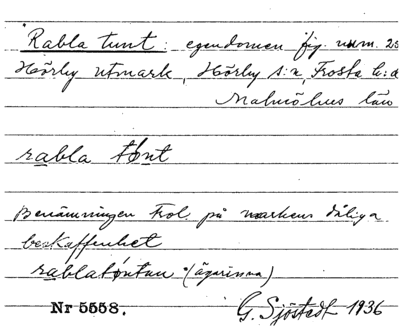 Rabla tunt: egendomen fig. num. 25
Hörby utmark, Hörby s:n, Frosta h:d
Malmöhus län
rabla tont
Benämningen trol. på markens dåliga
beskaffenhet
rablatontan (ägarinna)
Nr 5558. G. Sjöstedt 1936